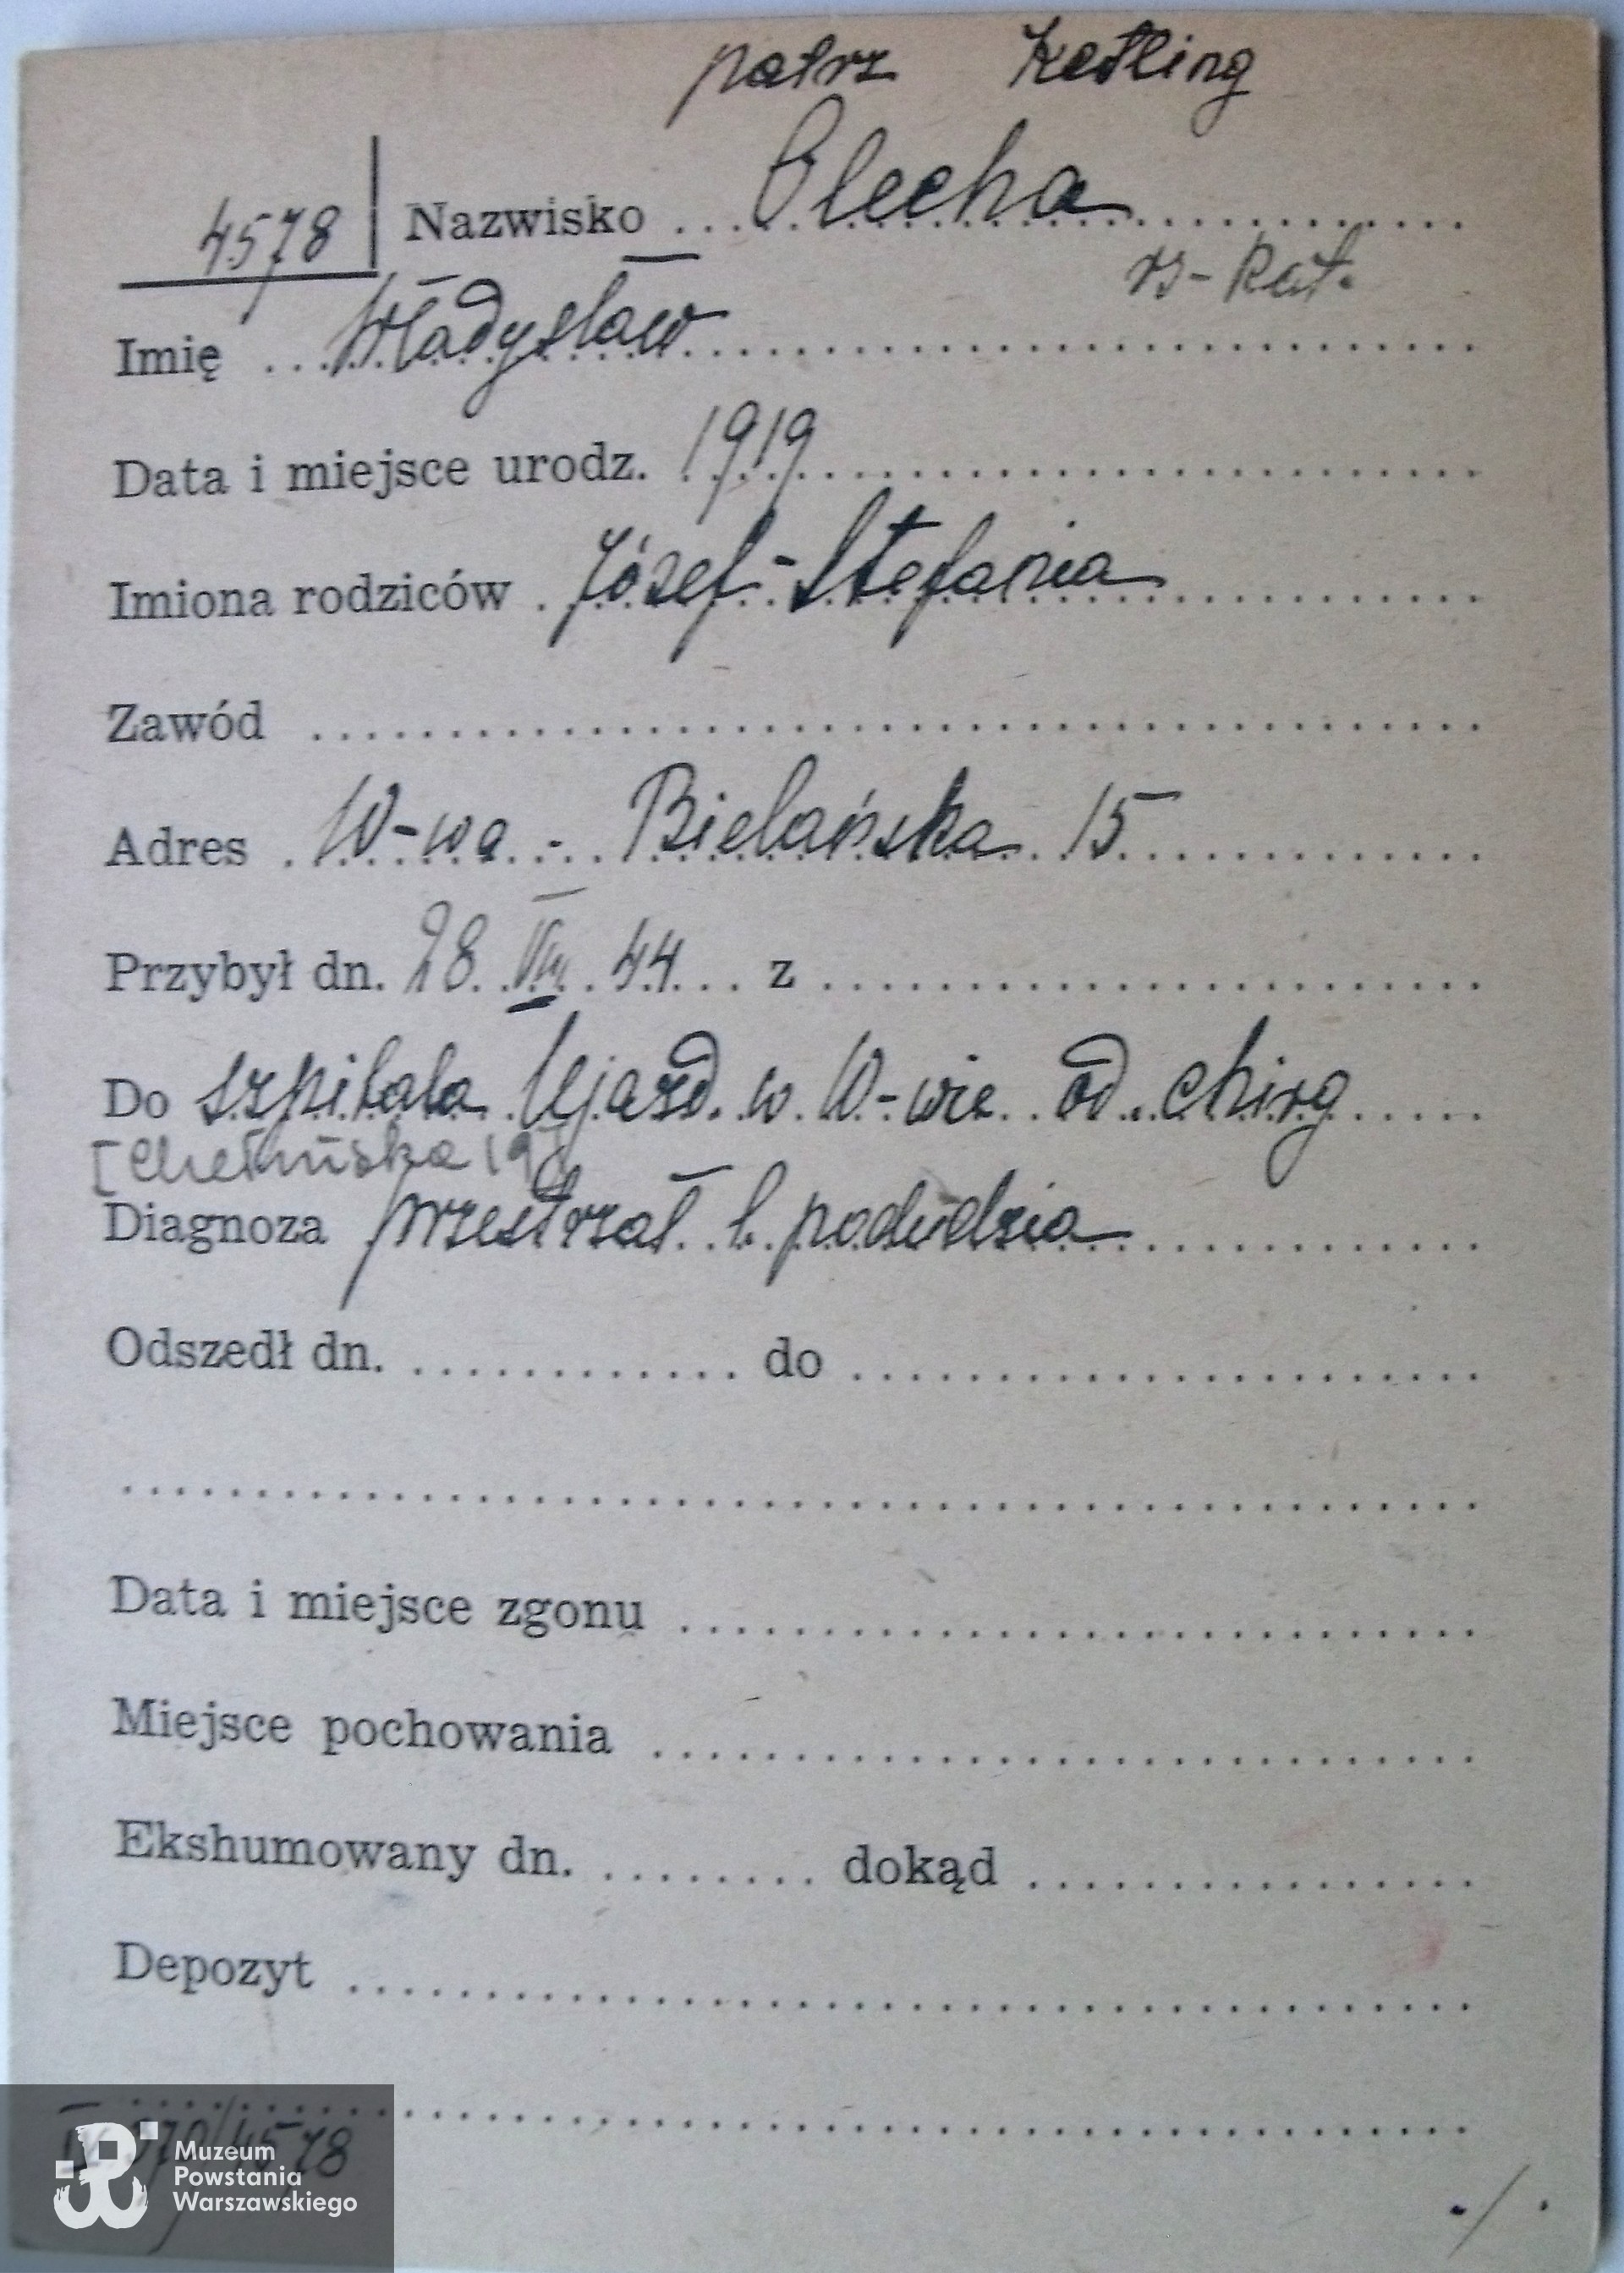 patrz Ketling
4578 Nazwisko Olecha
rz-kat.
Imię Władysław
Data i miejsce urodz. 1919
Imiona rodziców Józef-Stefania
Zawód
Adres W-wa - Bielańska 15
Przybył dn. 28 VIII 44 z
Do szpitala Ujazd. w W-wie od. chirg
[Chełmska 19]
Diagnoza przestrzał l. podudzia
Odszedł dn. do
Data i miejsce zgonu
Miejsce pochowania
Ekshumowany dn. dokąd
Depozyt
4578
Muzeum
Powstania
Warszawskiego